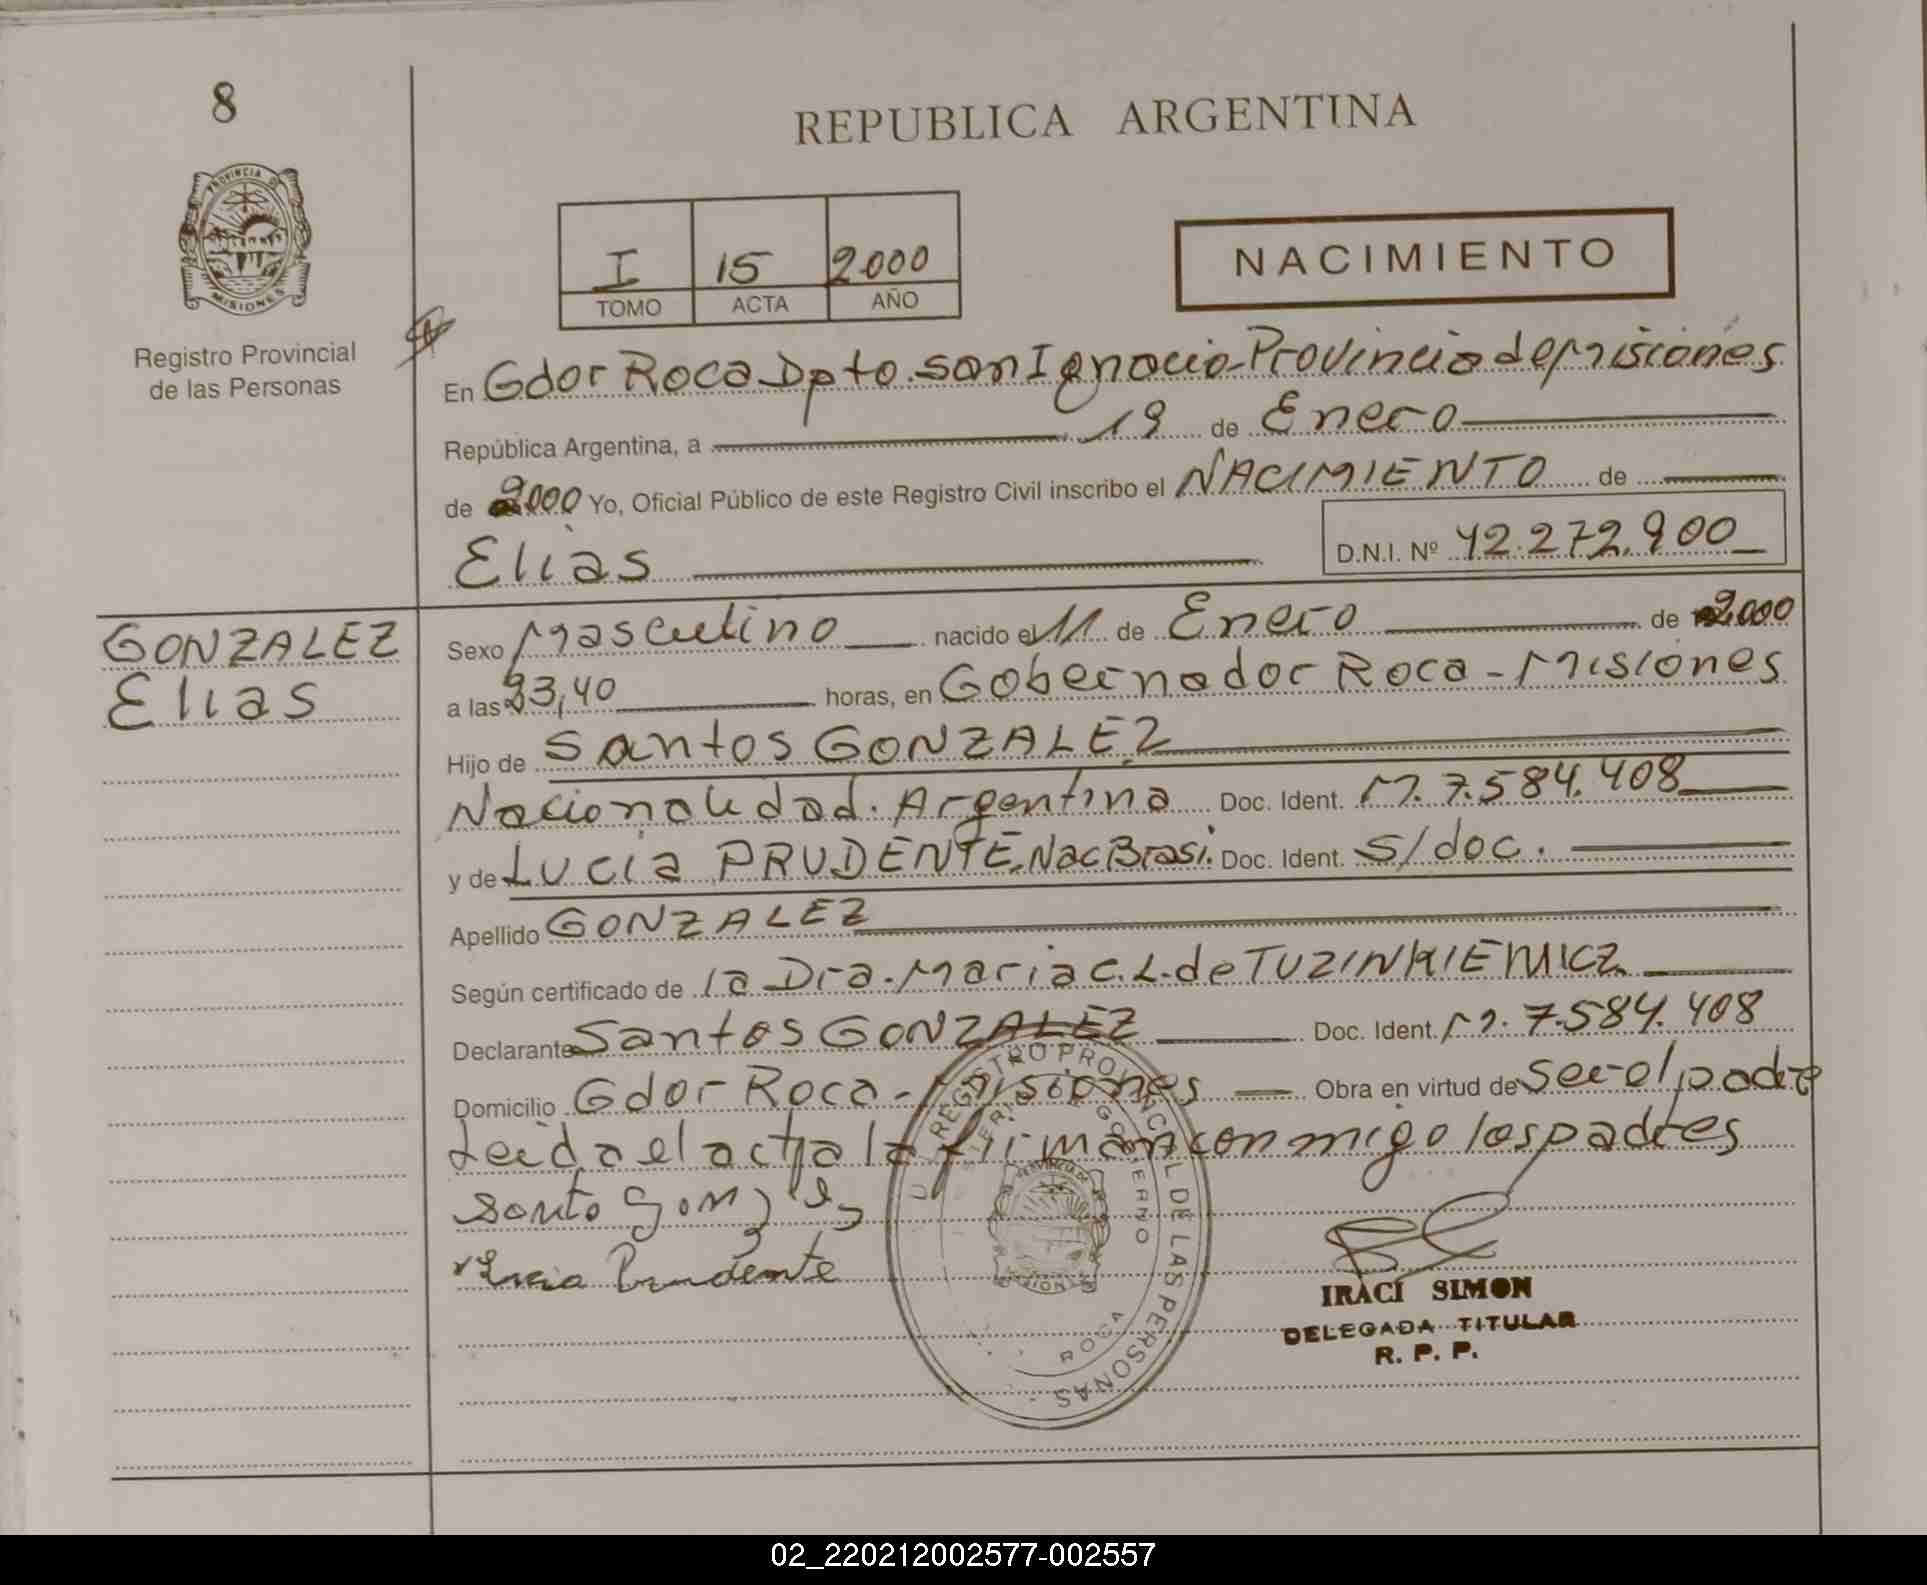 8
REPUBLICA ARGENTINA
PROVINCIA DE
MISIONES
Registro Provincial
de las Personas
I 15 2000
TOMO ACTA AÑO
NACIMIENTO
En Gdor Roca Dpto. San Ignacio-Provincia de Misiones
República Argentina, a 19 de Enero
de 2000 Yo, Oficial Público de este Registro Civil inscribo el NACIMIENTO de
Elias D.N.I. Nº 42.272.900
GONZALEZ
Elias
Sexo Masculino nacido el 11 de Enero de 2000
a las 23,40 horas, en Gobernador Roca - Misiones
Hijo de Santos GONZALEZ
Nacionalidad. Argentina Doc. Ident. M. 7.584.408
y de LUCIa PRUDENTE. Nac Brasi. Doc. Ident. S/doc.
Apellido GONZALEZ
Según certificado de la Dra. Maria C.L. de TUZINKIEWICZ
Declarante Santos GONZALEZ Doc. Ident. M. 7.584.408
Domicilio Gdor Roca - Misiones Obra en virtud de Ser el padre
Leida el acta la firman conmigo los padres
Santo Gonz
Prudente
REGISTRO PROVINCIAL DE LAS PERSONAS
GOBIERNO
ROCA
IRACI SIMON
DELEGADA TITULAR
R. P. P.
02_220212002577-002557